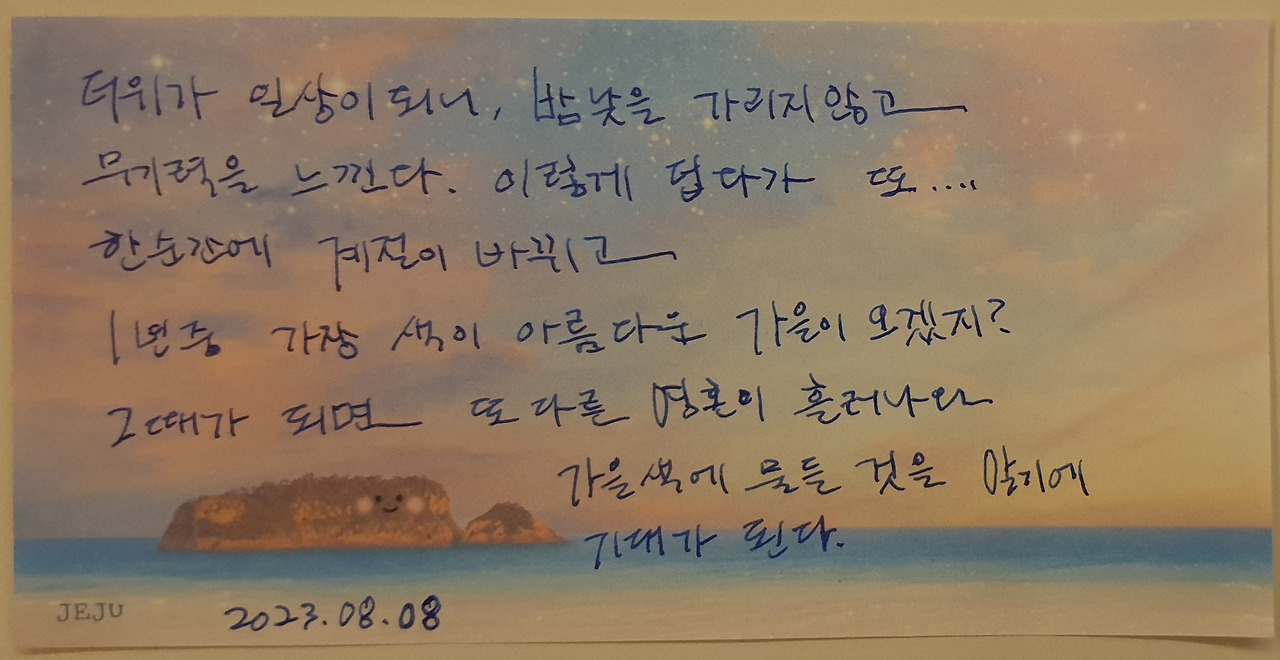 더위가 일상이 되니, 밤낮을 가리지않고
무기력을 느낀다. 이렇게 덥다가 또....
한순간에 계절이 바뀌고
1년중 가장 색이 아름다운 가을이 오겠지?
그때가 되면 또다른 영혼이 흘러나와
가을색에 물들 것을 알기에
기대가 된다.
JEJU 2023.08.08